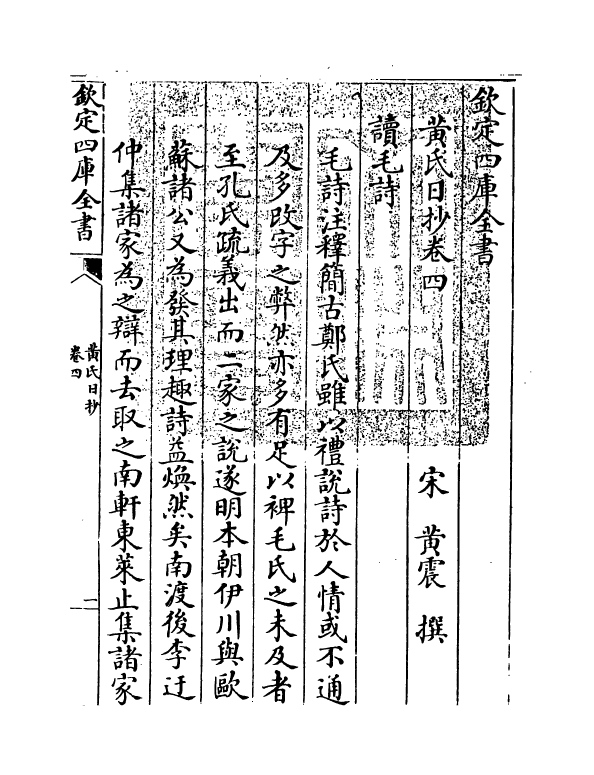 欽定四庫全書
黃氏日抄卷四
宋 黃震 撰
讀毛詩
毛詩注釋簡古鄭氏雖以禮說詩於人情或不通
及多改字之弊然亦多有足以裨毛氏之未及者
至孔氏疏義出而二家之說遂明本朝伊川與歐
蘇諸公又為發其理趣詩益煥然矣南渡後李迂
仲集諸家為之辯而去取之南軒東萊止集諸家
欽定四庫全書
黃氏日抄
卷四
一